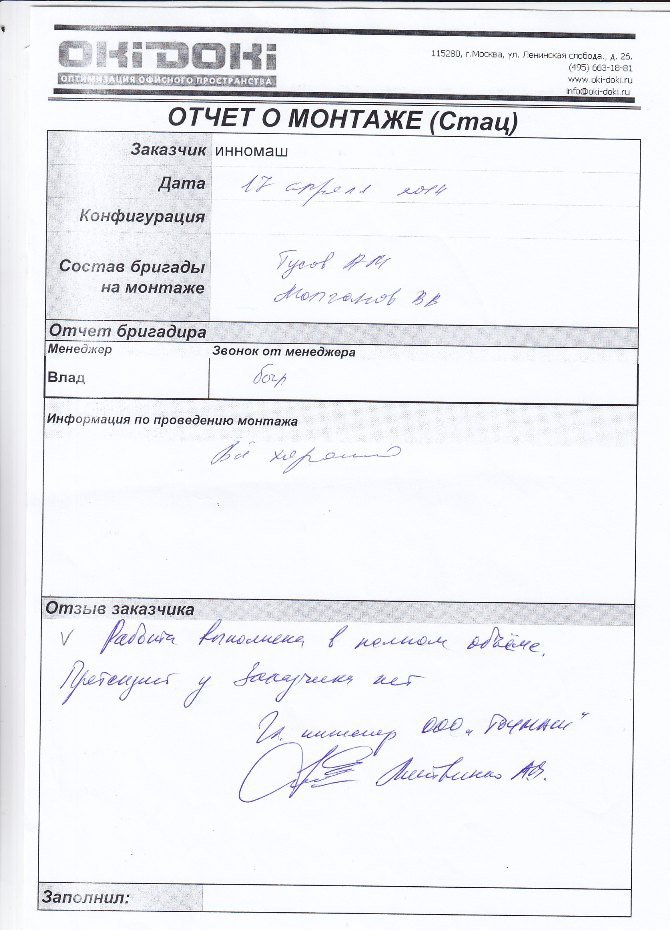 OKIDOKI
ОПТИМИЗАЦИЯ ОФИСНОГО ПРОСТРАНСТВА
115280, г.Москва, ул. Ленинская слобода., д. 26.
(495) 663-18-81
www.oki-doki.ru
info@oki-doki.ru
ОТЧЕТ О МОНТАЖЕ (Стац)
Заказчик инномаш
Дата 17 апреля 2014
Конфигурация
Состав бригады на монтаже
Гусов АМ
ВВ
Отчет бригадира
Менеджер Звонок от менеджера
Влад
Информация по проведению монтажа
Всё хорошо
Отзыв заказчика
V Работа выполнена в полном объёме.
Претензий у Заказчика нет
Гл. инженер ООО „Точмаш"
А.В.
Заполнил: